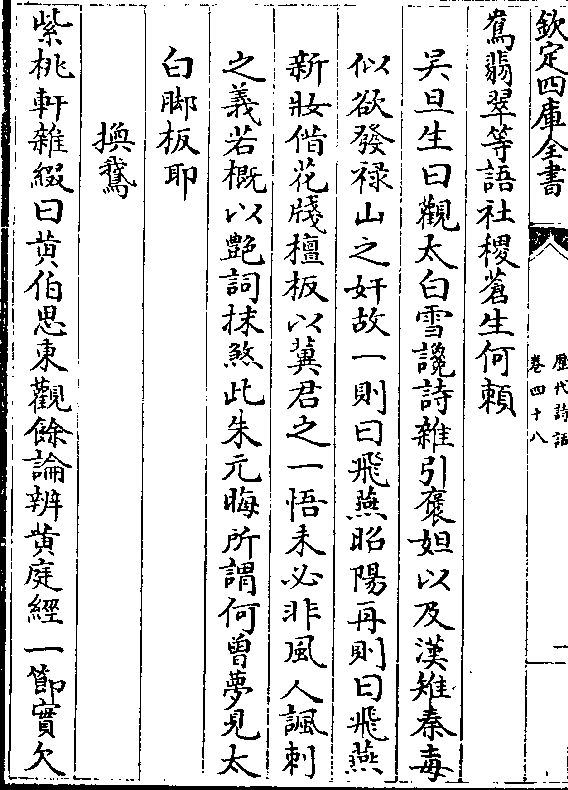 欽定四庫全書
歷代詩話
卷四十八
鴛翡翠等語社稷蒼生何賴
吳旦生曰觀太白雪讒詩雜引襃妲以及漢雉秦毒
似欲發祿山之奸故一則曰飛燕昭陽再則曰飛燕
新妝借花牋檀板以冀君之一悟未必非風人諷刺
之義若概以艶詞抹煞此朱元晦所謂何曾夢見太
白脚板耶
換鵞
紫桃軒雜綴曰黄伯思東觀餘論辨黄庭經一節實欠